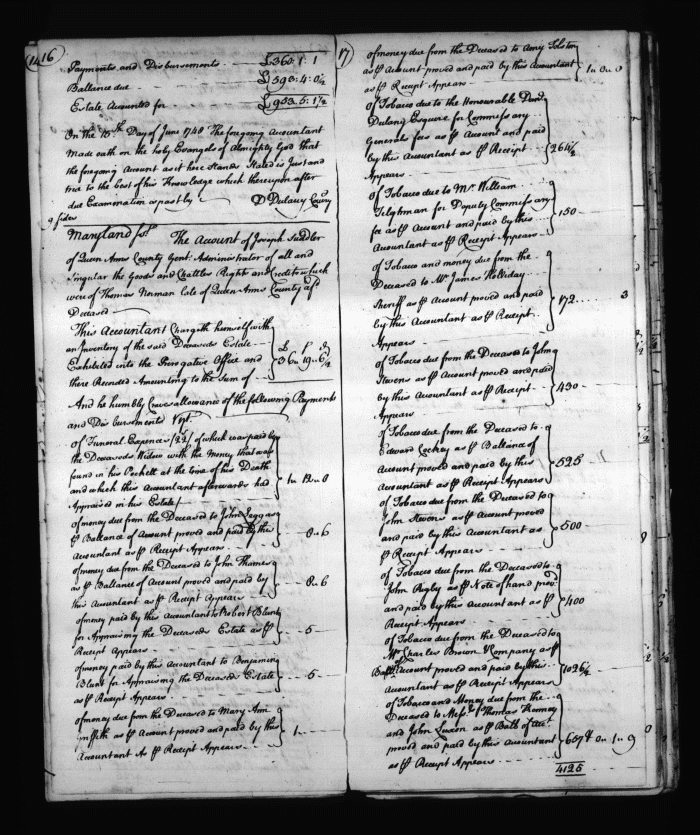 16
Payments and Disbursements £360: 1: 1
Ballance due £593: 4: 0½
Estate Accounted for £953: 5: 1½
On the 15th Day of June 1748 The foregoing Accountant
Made oath on the holy Evangels of Almighty God that
the foregoing Account as it here Stands Stated is Just and
true to the best of his Knowledge which thereupon after
due Examination as past by D Dulany Comry
9 sides
Maryland fst The Account of Joseph Sudler
of Queen Anns County Gent Administrator of all and
Singular the Goods and Chattles Rights and Credits which
were of Thomas Norman late of Queen Anns County afd
Deceased
This Accountant Chargeth himself with
an Inventory of the said Deceaseds Estate
Exhibited into the Prerogative Office and
there Recorded Amounting to the Sum of
£ s d
36 19 6¼
And he humbly Craves allowance of the following Payments
and Disbursements Vizt.
Of Funeral Expences of which was paid by
the Deceaseds Widow with the Money that was
found in his Pockett at the time of his Death
and which this Accountant afterwards had
Appraised in his Estate
1 12 0
Of money due from the Deceased to John Leggas
as P Ballance of Account proved and paid by this
Accountant as P Receipt Appears
0 6
Of money due from the Deceased to John Thomas
as P Ballance of Account proved and paid by
this Accountant as P Receipt appears
8 6
Of money paid by this Accountant to Robert Blunt
for Appraising the Deceaseds Estate as P
Receipt Appears
5
Of money paid by this Accountant to Benjamin
Blunt for Appraising the Deceaseds Estate
as P Receipt Appears
5
Of money due from the Deceased to Mary Ann
Griffith as P Account proved and paid by this
Accountant As P Receipt Appears
1
17
Of money due from the Deceased to Amy Tolston
as P Account proved and paid by this Accountant
as P Receipt Appears
1 0 0
Of Tobacco due to the Honourable Danl
Dulany Esquire for Commissary
Generals fees as P Account and paid
by this Accountant as P Receipt
Appears
264½
Of Tobacco due to Mr. William
Tilghman for Deputy Commissary
fee as P Account and paid by this
Accountant as P Receipt Appears
150
Of Tobacco and money due from the
Deceased to Mr James Holliday
Sheriff as P Account proved and paid
by this Accountant as P Receipt
Appears
172 3
Of Tobacco due from the Deceased to John
Stevens as P Account proved and paid
by this Accountant as P Receipt
Appears
430
Of Tobacco due from the Deceased to
Edward Lockey as P Ballance of
Account proved and paid by this
Accountant as P Receipt Appears
525
Of Tobacco due from the Deceased to
John Stevens as P Account proved
and paid by this Accountant as
P Receipt Appears
500
Of Tobacco due from the Deceased to
John Rigby as P Note of hand prov'd
and paid by this Accountant as P
Receipt Appears
400
Of Tobacco due from the Deceased to
Mr Charles Brown & Company as P
Ball. of Account proved and paid by this
Accountant as P Receipt Appears
1026½
Of Tobacco and Money due from the
Deceased to Messrs. Thomas
and John Luxon as P Ball. of Acct.
proved and paid by this Accountant
as P Receipt Appears
657 0 1 9
4125